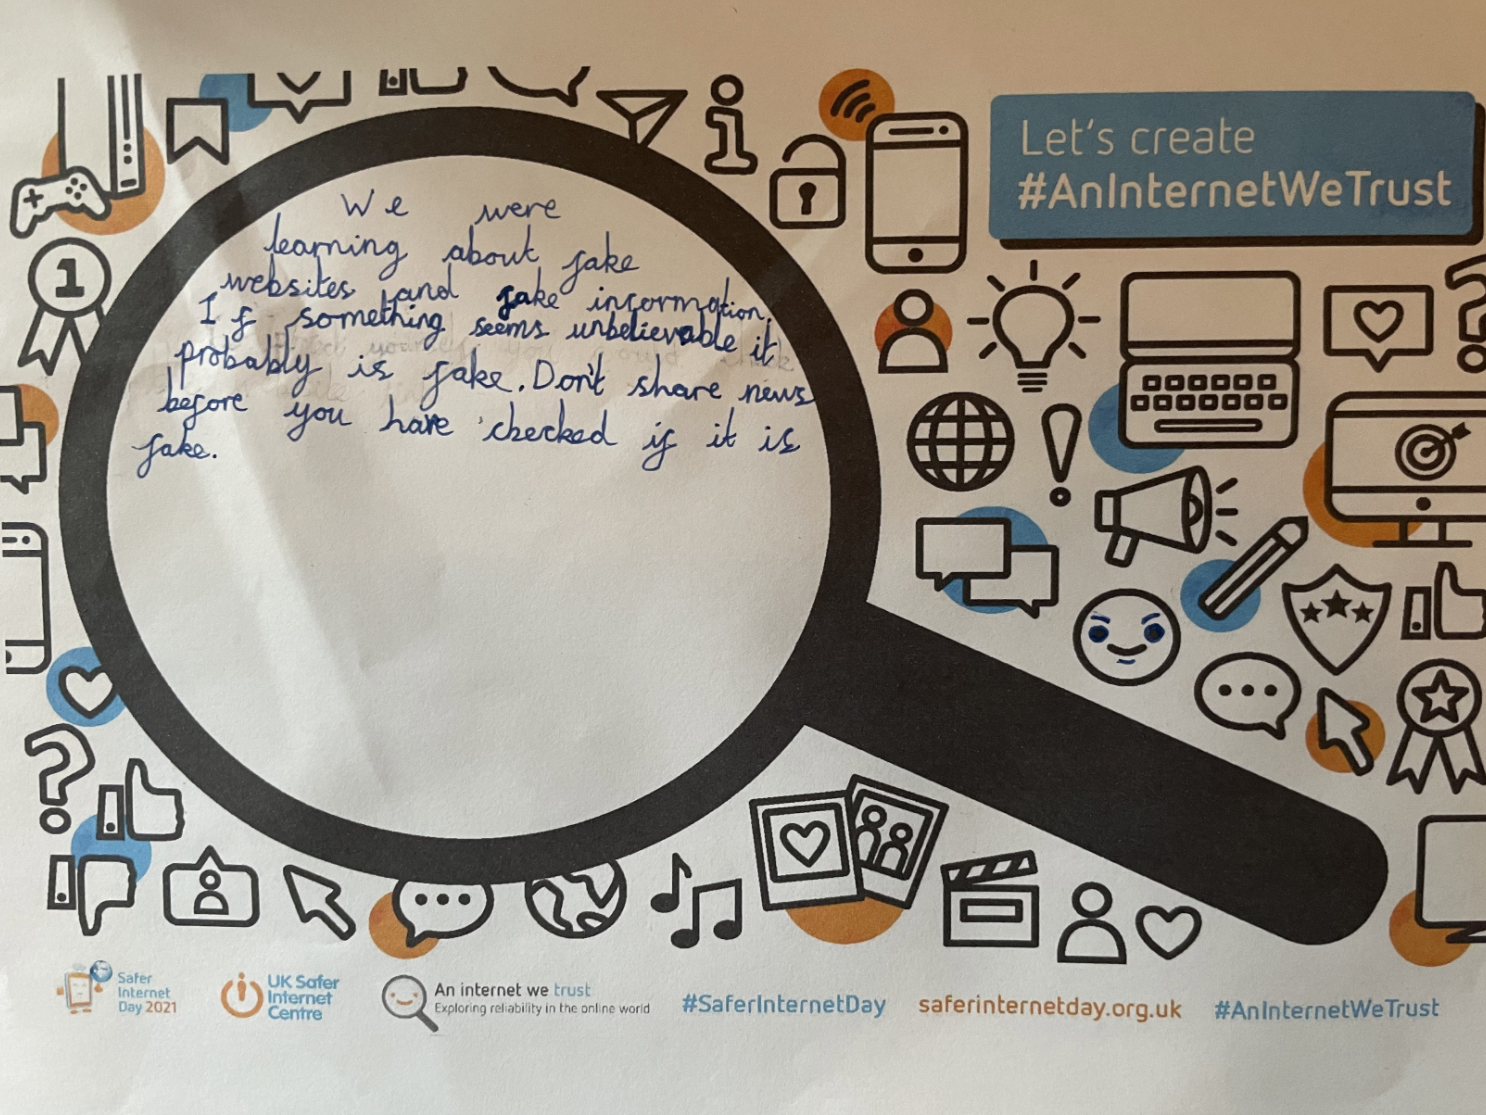 Let's create
#AnInternetWeTrust
1
We were
learning about fake
websites and fake information.
If something seems unbelievable it
probably is fake. Don't share news
before you have checked if it is
fake.
Safer
Internet
Day 2021
UK Safer
Internet
Centre
An internet we trust
Exploring reliability in the online world
#SaferInternetDay
saferinternetday.org.uk
#AnInternetWeTrust